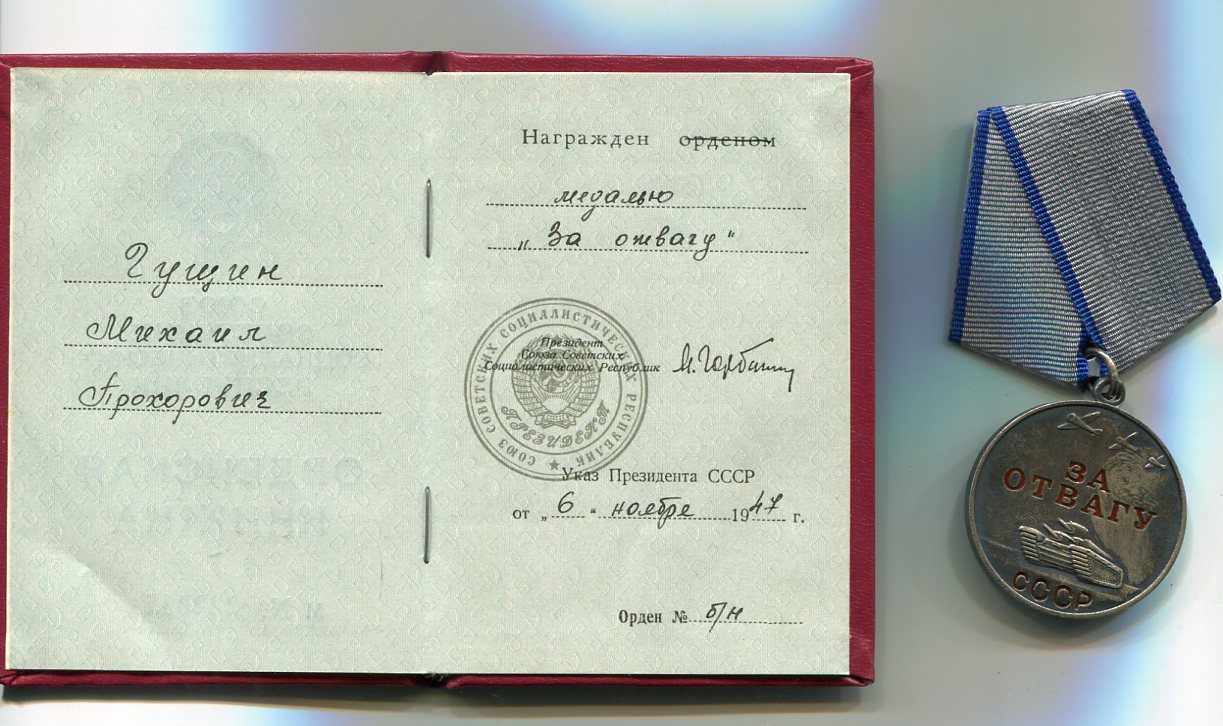 Гущин
Михаил
Прохорович
Награжден орденом
медалью
„За отвагу“
СОЮЗ СОВЕТСКИХ СОЦИАЛИСТИЧЕСКИХ РЕСПУБЛИК
Президент
Союза Советских
Социалистических Республик М. Горбачев
ПРЕЗИДЕНТ
Указ Президента СССР
от „6“ ноября 1947 г.
Орден № б/н
ЗА
ОТВАГУ
СССР